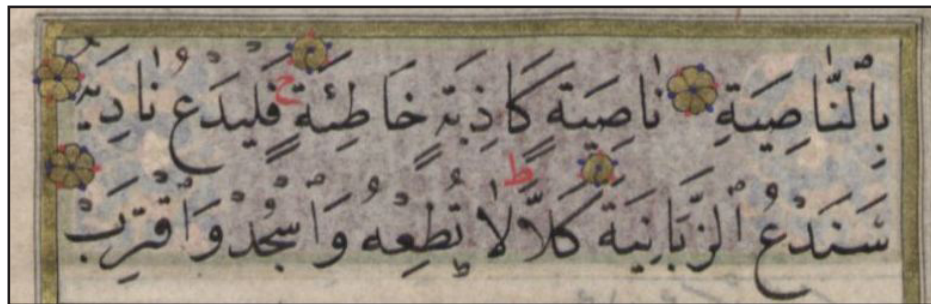 بِٱلنَّاصِيَةِ نَاصِيَةٍ كَاذِبَةٍ خَاطِئَةٍ ح فَلْيَدْعُ نَادِيَهُ
سَنَدْعُ ٱلزَّبَانِيَةَ كَلَّا لَا ط تُطِعْهُ وَٱسْجُدْ وَٱقْتَرِبْ